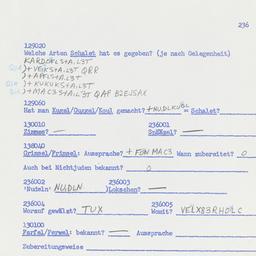 236
129020
Welche Arten Schalet hat es gegeben? (je nach Gelegenheit)
KARDOFLSTA.L3T
)+VEIKSTA.L3T QRR
)+APFLSTA.L3T
)+KUKUKSTA.L3T
)+MAC3STA.L3T QAF B2EJSAX
129060
Hat man Kugel/Guggel/Koul gemacht? +NUDLKUGL = Schalet?
130010 236001
Zimmes? — SoŠSel? —
138040
Grimsel/Frimsel: Aussprache? + FON MAC3 Wann zubereitet? O
Auch bei Nichtjuden bekannt? O
236002 236003
'Nudeln' NUDLN )Lokschen? —
236004 236005
Worauf gewälzt? TUX Womit? VELX83RHOLC
130100
Farfel/Ferwel: bekannt? — Aussprache
Zubereitungsweise